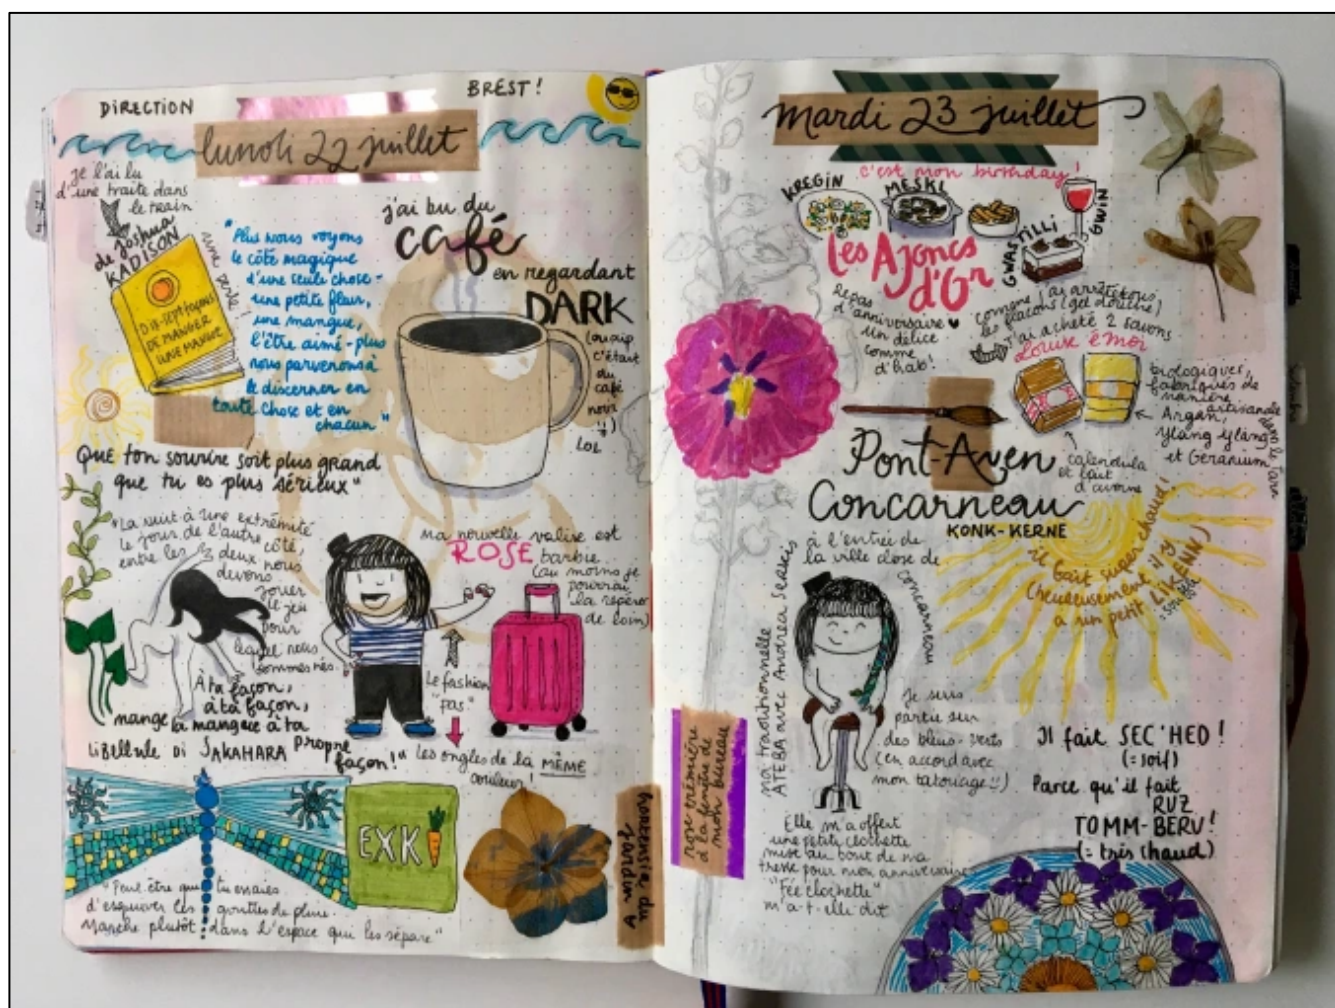 DIRECTION
BREST !
lundi 22 juillet
je l'ai lu
d'une traite dans
le train
de Joshua
KADISON
une perle !
DIX-SEPT FAÇONS
DE MANGER
UNE MANGUE
"Plus nous voyons
le côté magique
d'une seule chose -
une petite fleur,
une mangue,
l'être aimé - plus
nous parvenons à
le discerner en
toute chose et en
chacun"
j'ai bu du
café
en regardant
DARK
(ouaip
c'était
du
café
noir
!!)
LOL
Que ton sourire soit plus grand
que tu es plus sérieux"
"La nuit à une extrémité
le jour de l'autre côté,
entre les deux nous
devons
jouer
le jeu
pour
lequel nous
sommes nés.
À ta façon,
à ta façon,
mange la mangue à ta
propre
façon !"
ma nouvelle valise est
ROSE barbie
(au moins je
pourrai
la repérer
de loin)
Le fashion
"pas"
Les ongles de la MÊME
couleur !
LIBELLULE DI JAKAHARA
EXKI
"Peut-être que tu essaies
d'esquiver les gouttes de pluie.
Marche plutôt dans l'espace qui les sépare"
hortensia du
jardin
mardi 23 juillet
c'est mon birthday !
KREGIN
MESKL
GWASTILLI
GWIN
Les Ajoncs
d'Or
Repas
d'anniversaire
Un délice
comme
d'hab !
comme j'ai arrêté tous
les flacons (gel douche)
j'ai acheté 2 savons
Louise émoi
biologiques,
fabriqués de
manière
artisanale
dans le Tarn
Argan,
Ylang Ylang
et Geranium
calendula
et lait
d'avoine
Pont-Aven
Concarneau
KONK-KERNE
à l'entrée de
la ville close de
concarneau
ma traditionnelle
ATEBA avec Andrea Seakis
il fait super chaud !
(heureusement il y
a un petit LIKENN)
souffle
Je suis
partie sur
des bleus-verts
(en accord avec
mon tatouage !!)
Il fait SEC'HED !
(= soif)
Parce qu'il fait
RUZ
TOMM-BERV !
(= très chaud)
rose trémière
à la fenêtre de
mon bureau
Elle m'a offert
une petite clochette
mise au bout de ma
tresse pour mon anniversaire
"Fée clochette"
m'a-t-elle dit